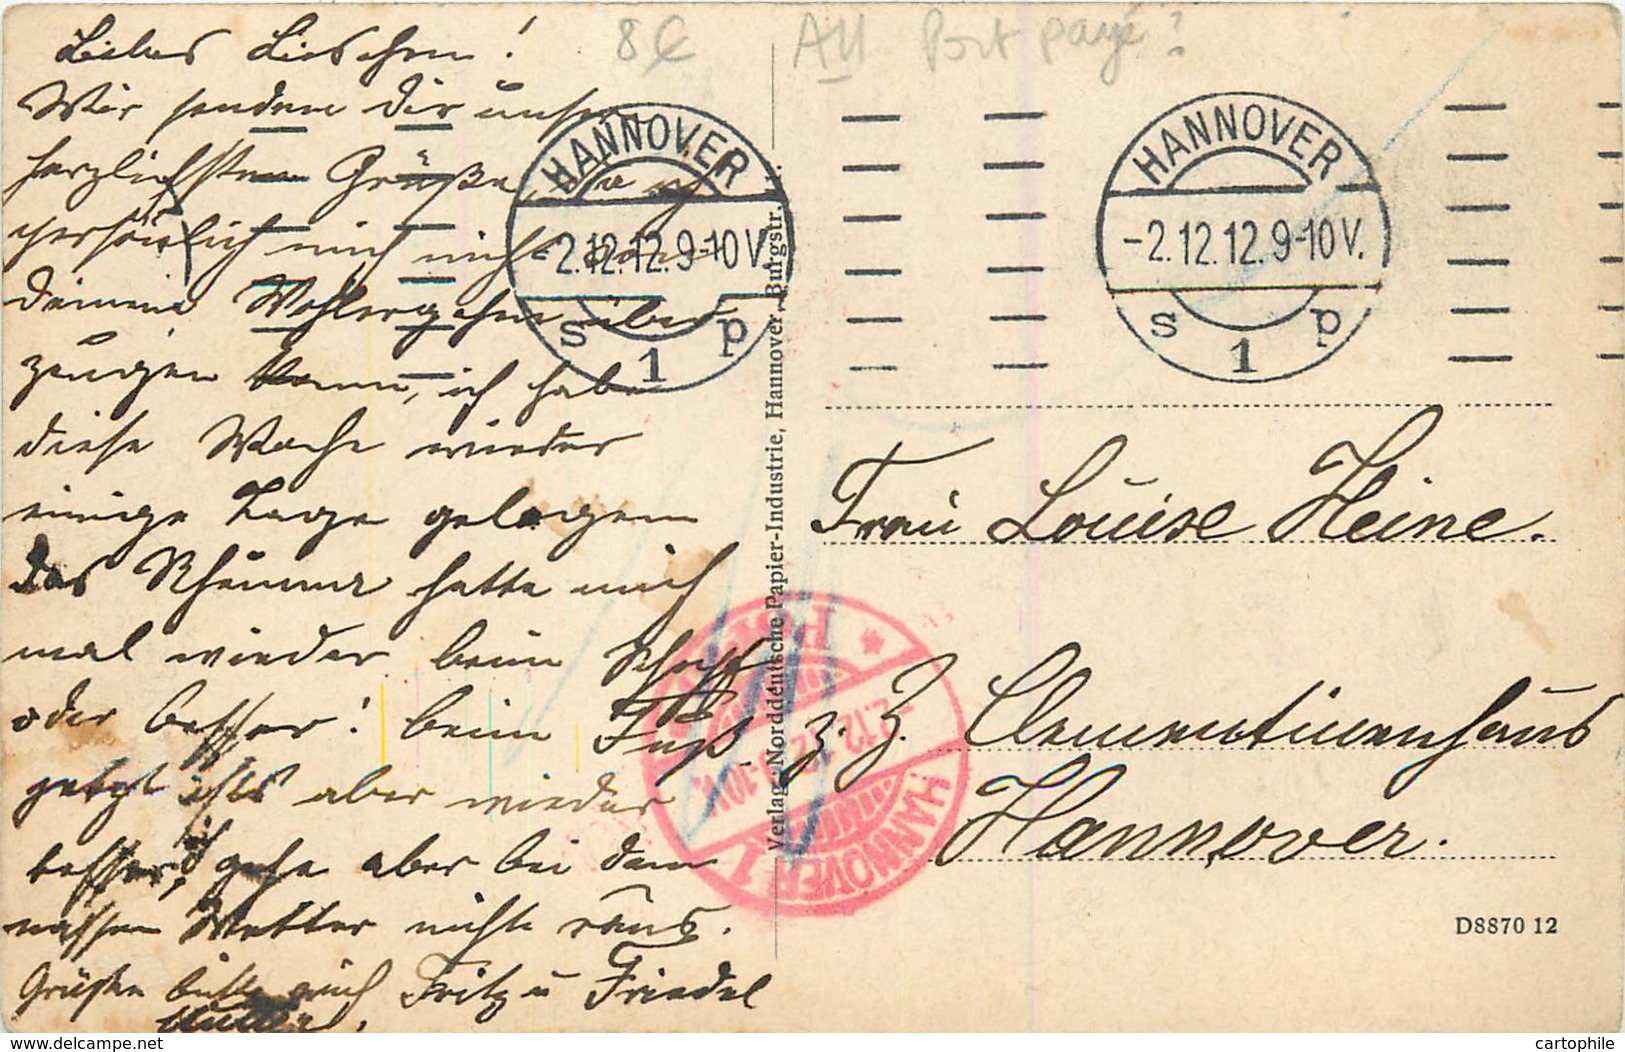 8€ All Port payé?
Liebes Lieschen!
Wir senden dir unsere
herzlichsten Grüße, da ich
persönlich mich nicht von
deinem Wohlergehen über
zeugen kann, ich habe
diese Woche wieder
einige Tage gelegen
das Rheuma hatte mich
mal wieder beim Schopf
oder besser! beim Fuß
jetzt ists aber wieder
besser, ich gehe aber bei dem
nassen Wetter nicht raus.
Grüßen bitte auch Fritz u Friedel
Mutter.
HANNOVER
-2.12.12.9-10V.
s 1 p
HANNOVER
-2.12.12.9-10V.
s 1 p
Verlag: Norddeutsche Papier-Industrie, Hannover, Burgstr.
Frau Louise Heine.
z. Z. Clementinenhaus
Hannover.
HANNOVER 1
D8870 12
delcampe.net
cartophile